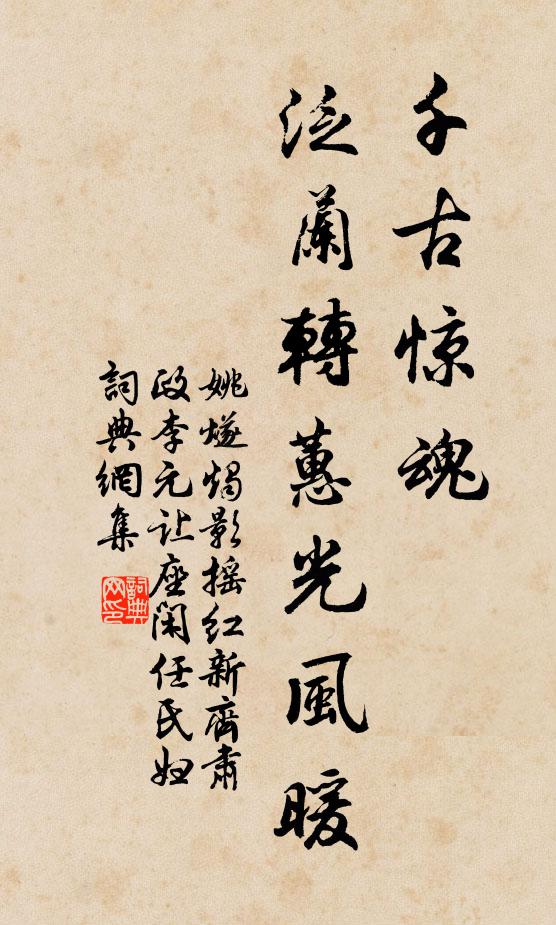 千古惊魂
泛蘭轉蕙光風暖
姚燧燭影摇红新齋肅
政李元让座閑任氏妇
詞典網集
詞典网印